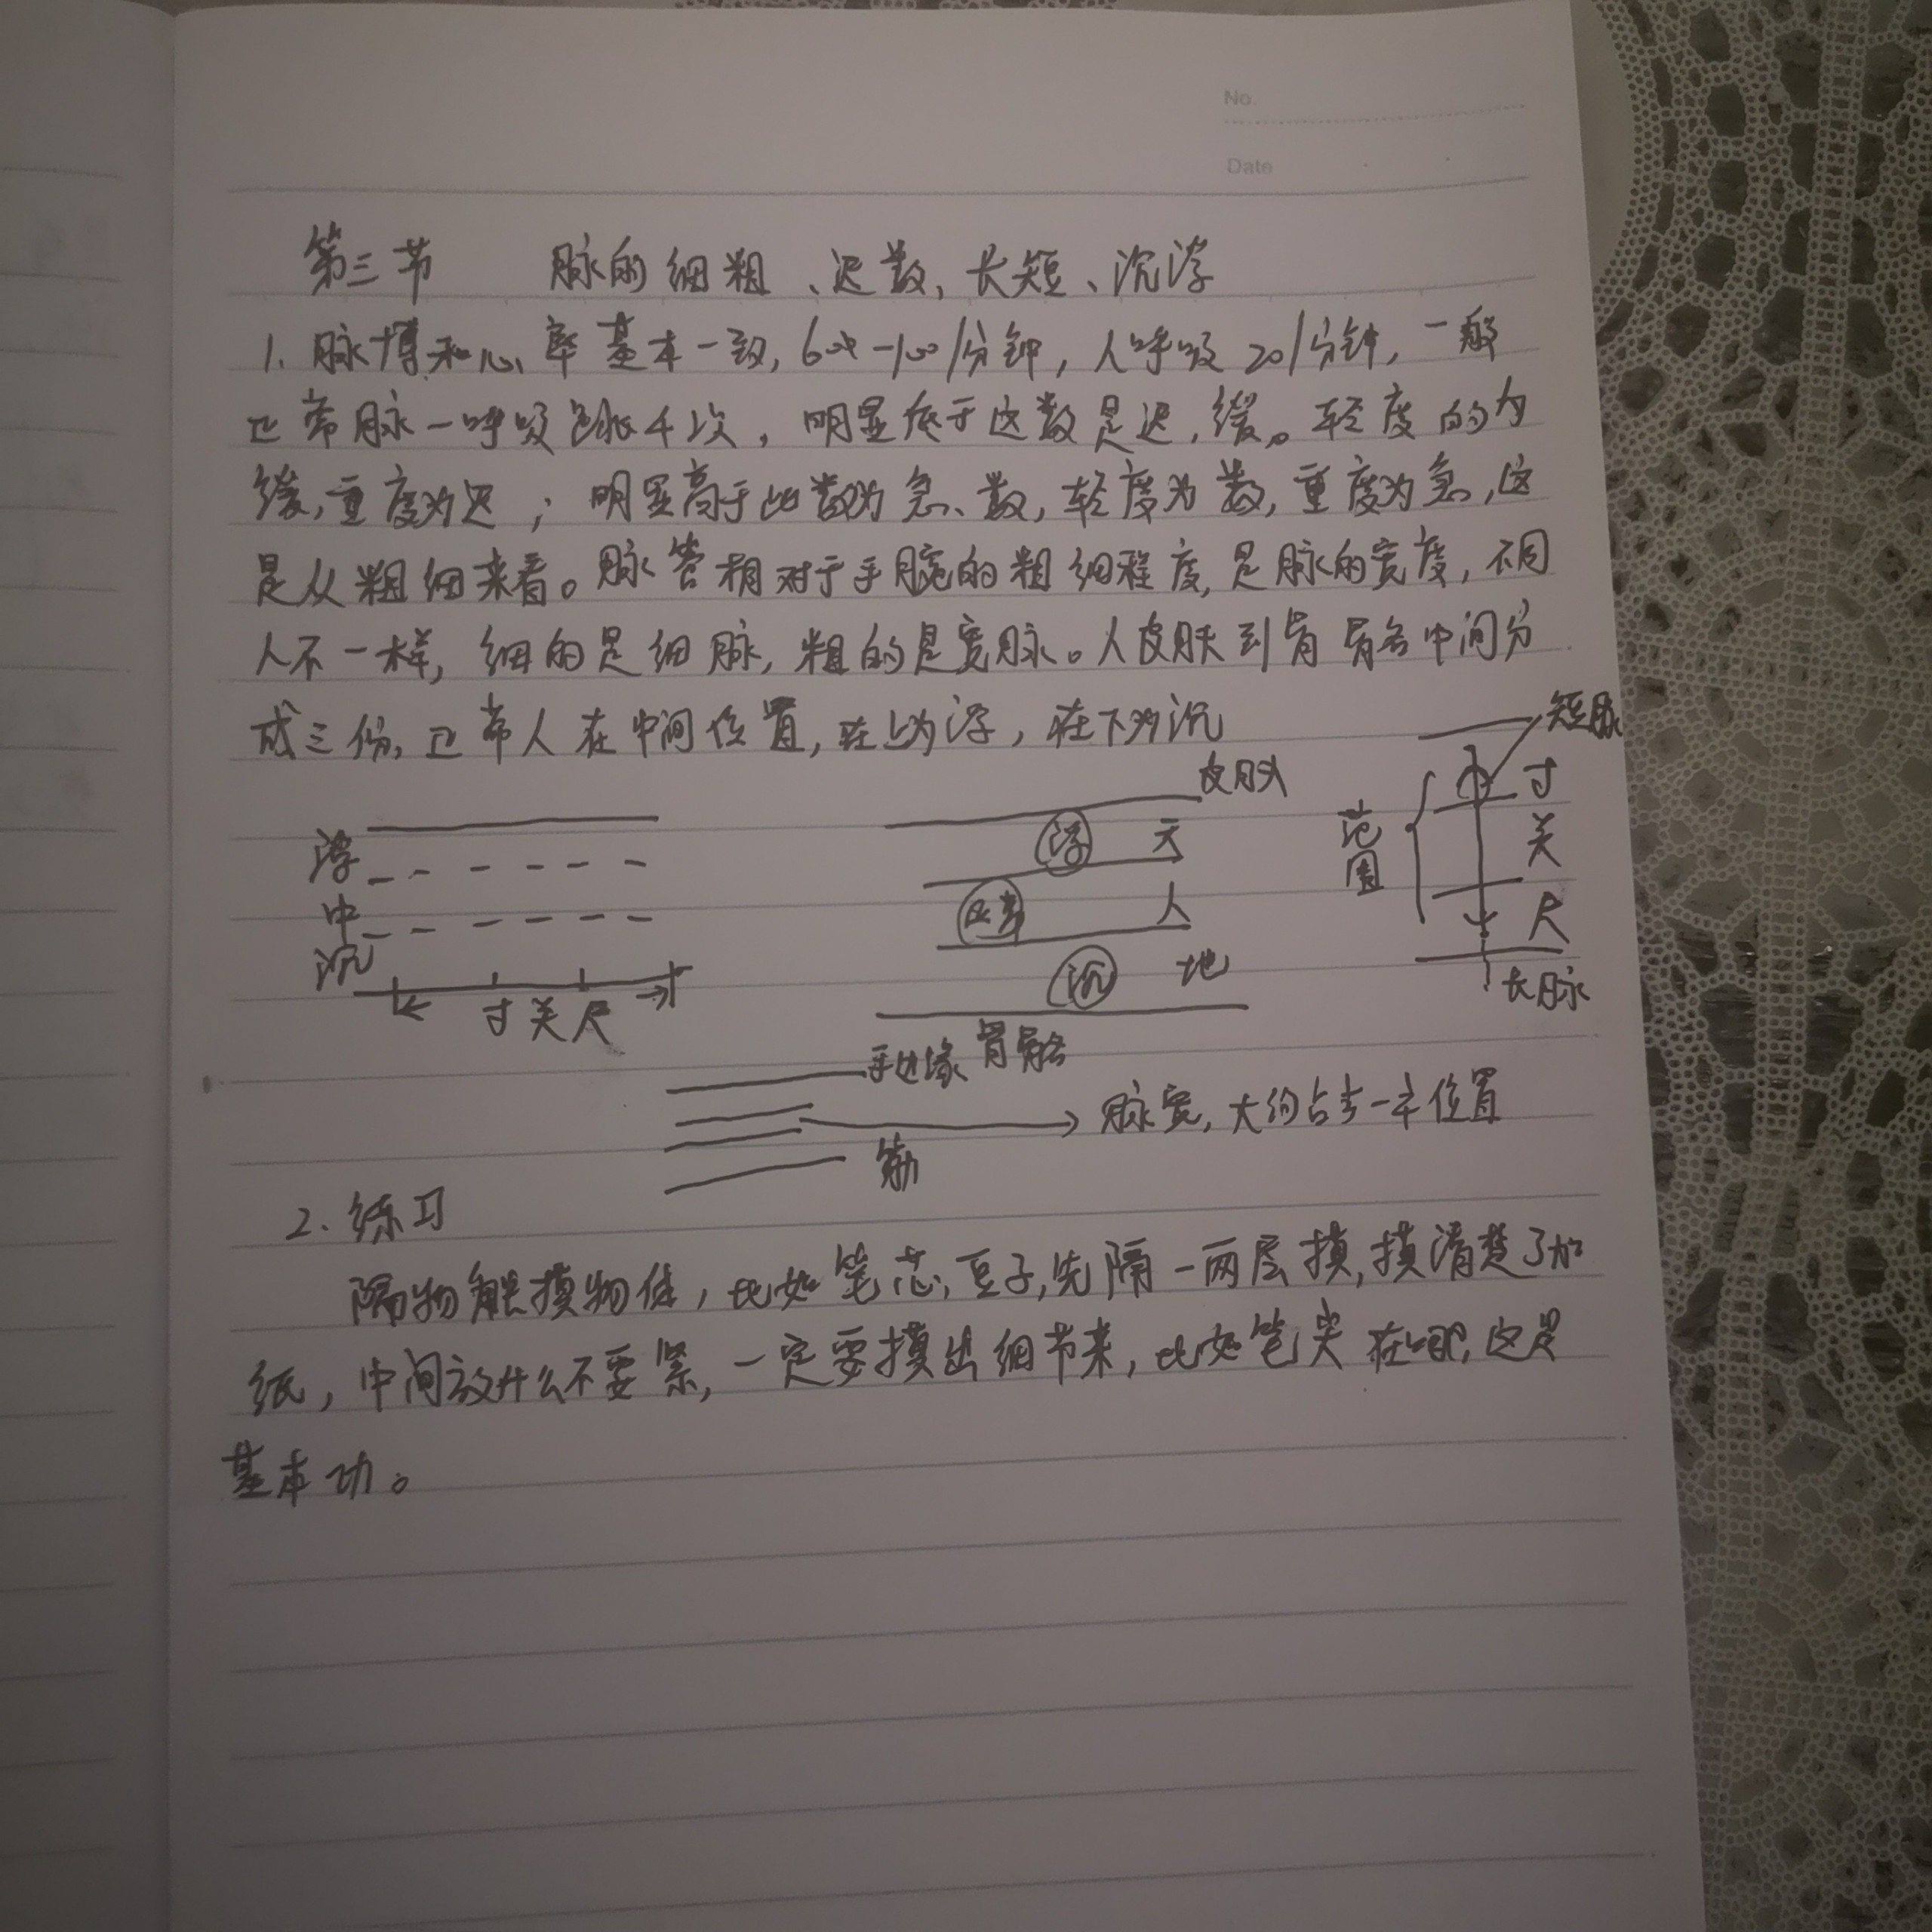 No.
Date
第三节 脉的细粗、迟数,长短、沉浮
1. 脉博和心率基本一致,60次-100/分钟,人呼吸20/分钟,一般
正常脉一呼吸跳4次,明显底于这数是迟,缓。轻度的为
缓,重度为迟;明显高于此数为急、数,轻度为数,重度为急,这
是从粗细来看。脉管相对于手腕的粗细程度,是脉的宽度,不同
人不一样,细的是细脉,粗的是宽脉。人皮肤到骨骼中间分
成三份,正常人在中间位置,在上为浮,在下为沉
短脉
皮肤
浮 浮 天 寸
范围 关
中 正常 人
尺
沉 沉 地
长脉
寸关尺
手边缘 骨骼
脉宽,大约占去一半位置
筋
2. 练习
隔物触摸物体,比如笔芯,豆子,先隔一两层摸,摸清楚了加
纸,中间放什么不要紧,一定要摸出细节来,比如笔尖在哪,这是
基本功。